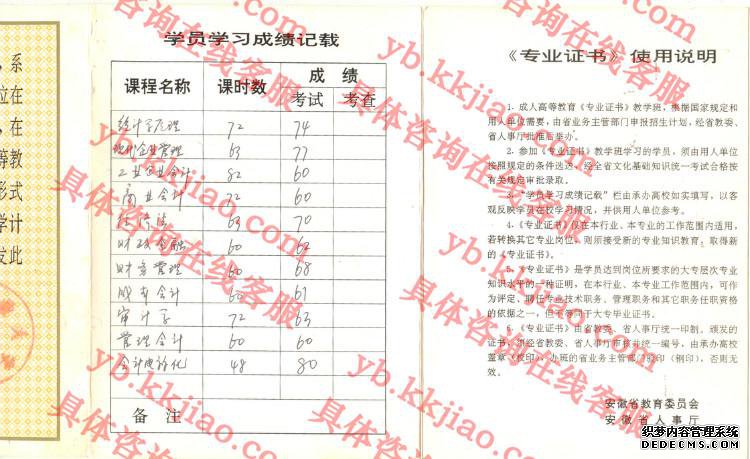 系
位在
,在
等教
形式
学计
发此
学员学习成绩记载
课程名称 课时数 成绩
考试 考查
统计学原理 72 74
现代企业管理 63 77
工业企业会计 82 60
商业会计 72 60
经济法 63 70
财政金融 60 62
财务管理 60 68
成本会计 60 61
审计学 72 63
管理会计 60 60
会计电算化 48 80
备注
《专业证书》使用说明
1.成人高等教育《专业证书》教学班,根据国家规定和
用人单位需要,由省业务主管部门申报招生计划,经省教委、
省人事厅批准后举办。
2.参加《专业证书》教学班学习的学员,须由用人单位
按照规定的条件选送,经全省文化基础知识统一考试合格按
有关规定审批录取。
3.“学员学习成绩记载”栏由承办高校如实填写,以客
观反映学员在校学习情况,并供用人单位参考。
4.《专业证书》仅在本行业、本专业的工作范围内适用,
若转换其它专业岗位,则须接受新的专业知识教育,取得新
的《专业证书》。
5.《专业证书》是学员达到岗位所要求的大专层次专业
知识水平的一种证明,在本行业、本专业工作范围内,可作
为评定、聘任专业技术职务、管理职务和其它职务任职资格
的依据之一,但不等同于大专毕业证书。
6.《专业证书》由省教委、省人事厅统一印制,颁发的
证书,须经省教委、省人事厅审核并统一编号,由承办高校
盖章(校印)、办班的省业务主管部门验印(钢印),否则无
效。
安徽省教育委员会
安徽省人事厅
yb.kkjiao.com
具体咨询在线客服
织梦内容管理系统
DEDECMS.COM